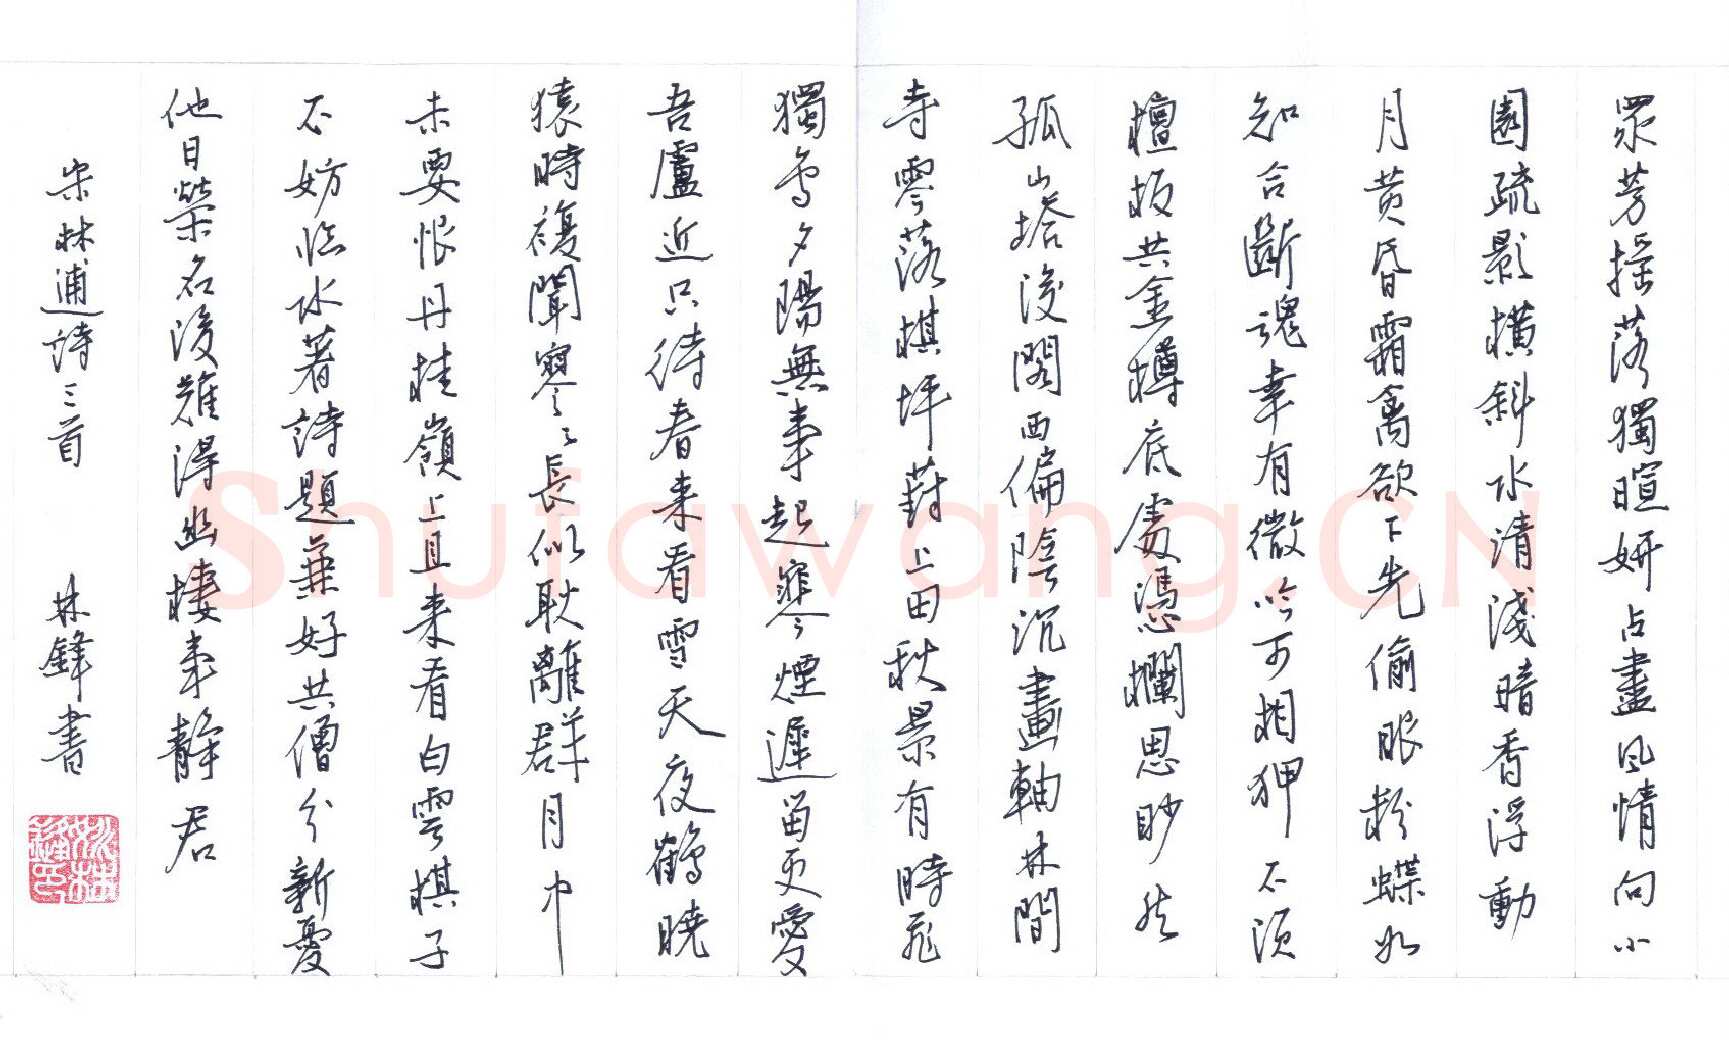 眾芳搖落獨暄妍占盡風情向小
園疏影橫斜水清淺暗香浮動
月黄昏霜禽欲下先偷眼粉蝶如
知合斷魂幸有微吟可相狎不須
檀板共金樽底處憑欄思眇然
孤山塔後閣西偏陰沉畫軸林間
寺零落棋坪葑上田秋景有時飛
獨鳥夕陽無事起寒煙遲留更愛
吾廬近只待春来看雪天夜鶴曉
猿時複聞寥々長似耿離群月中
未要恨丹桂嶺上且来看白雲棋子
不妨臨水著詩題兼好共僧分新憂
他日榮名後難得幽棲事靜君
宋林逋詩三首
林鋒書
Shufawang.CN